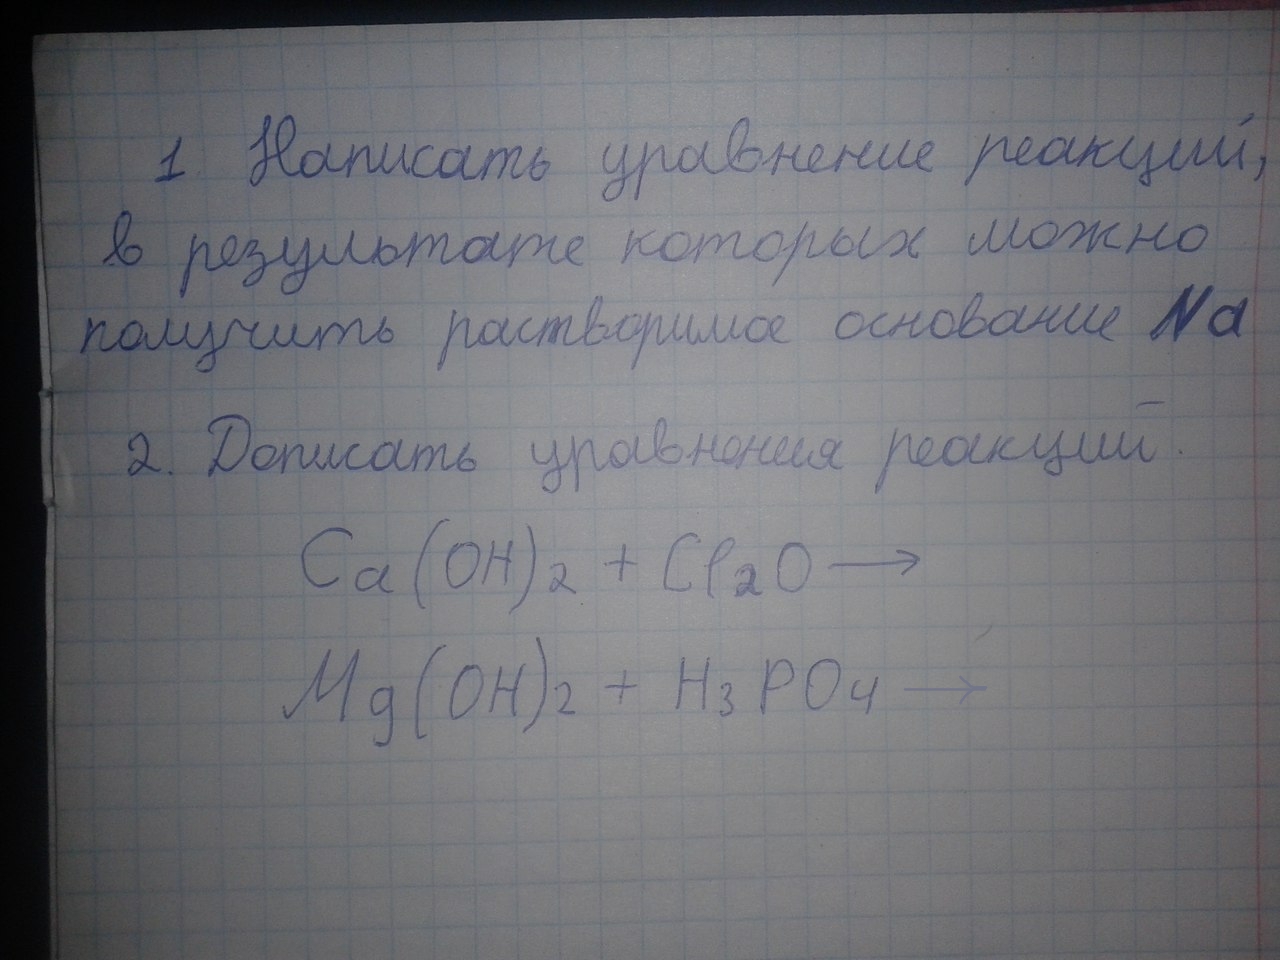 1. Написать уравнение реакций,
в результате которых можно
получить растворимое основание Na
2. Дописать уравнения реакций.
Ca(OH)2 + Cl2O →
Mg(OH)2 + H3PO4 →